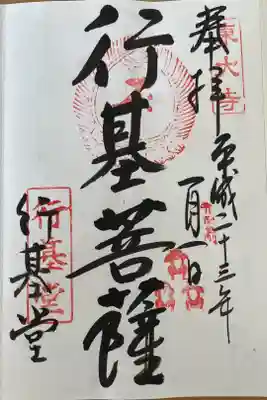 東大寺
奉拝
平成二十三年
一月一日
行基菩薩
行基堂
行基堂